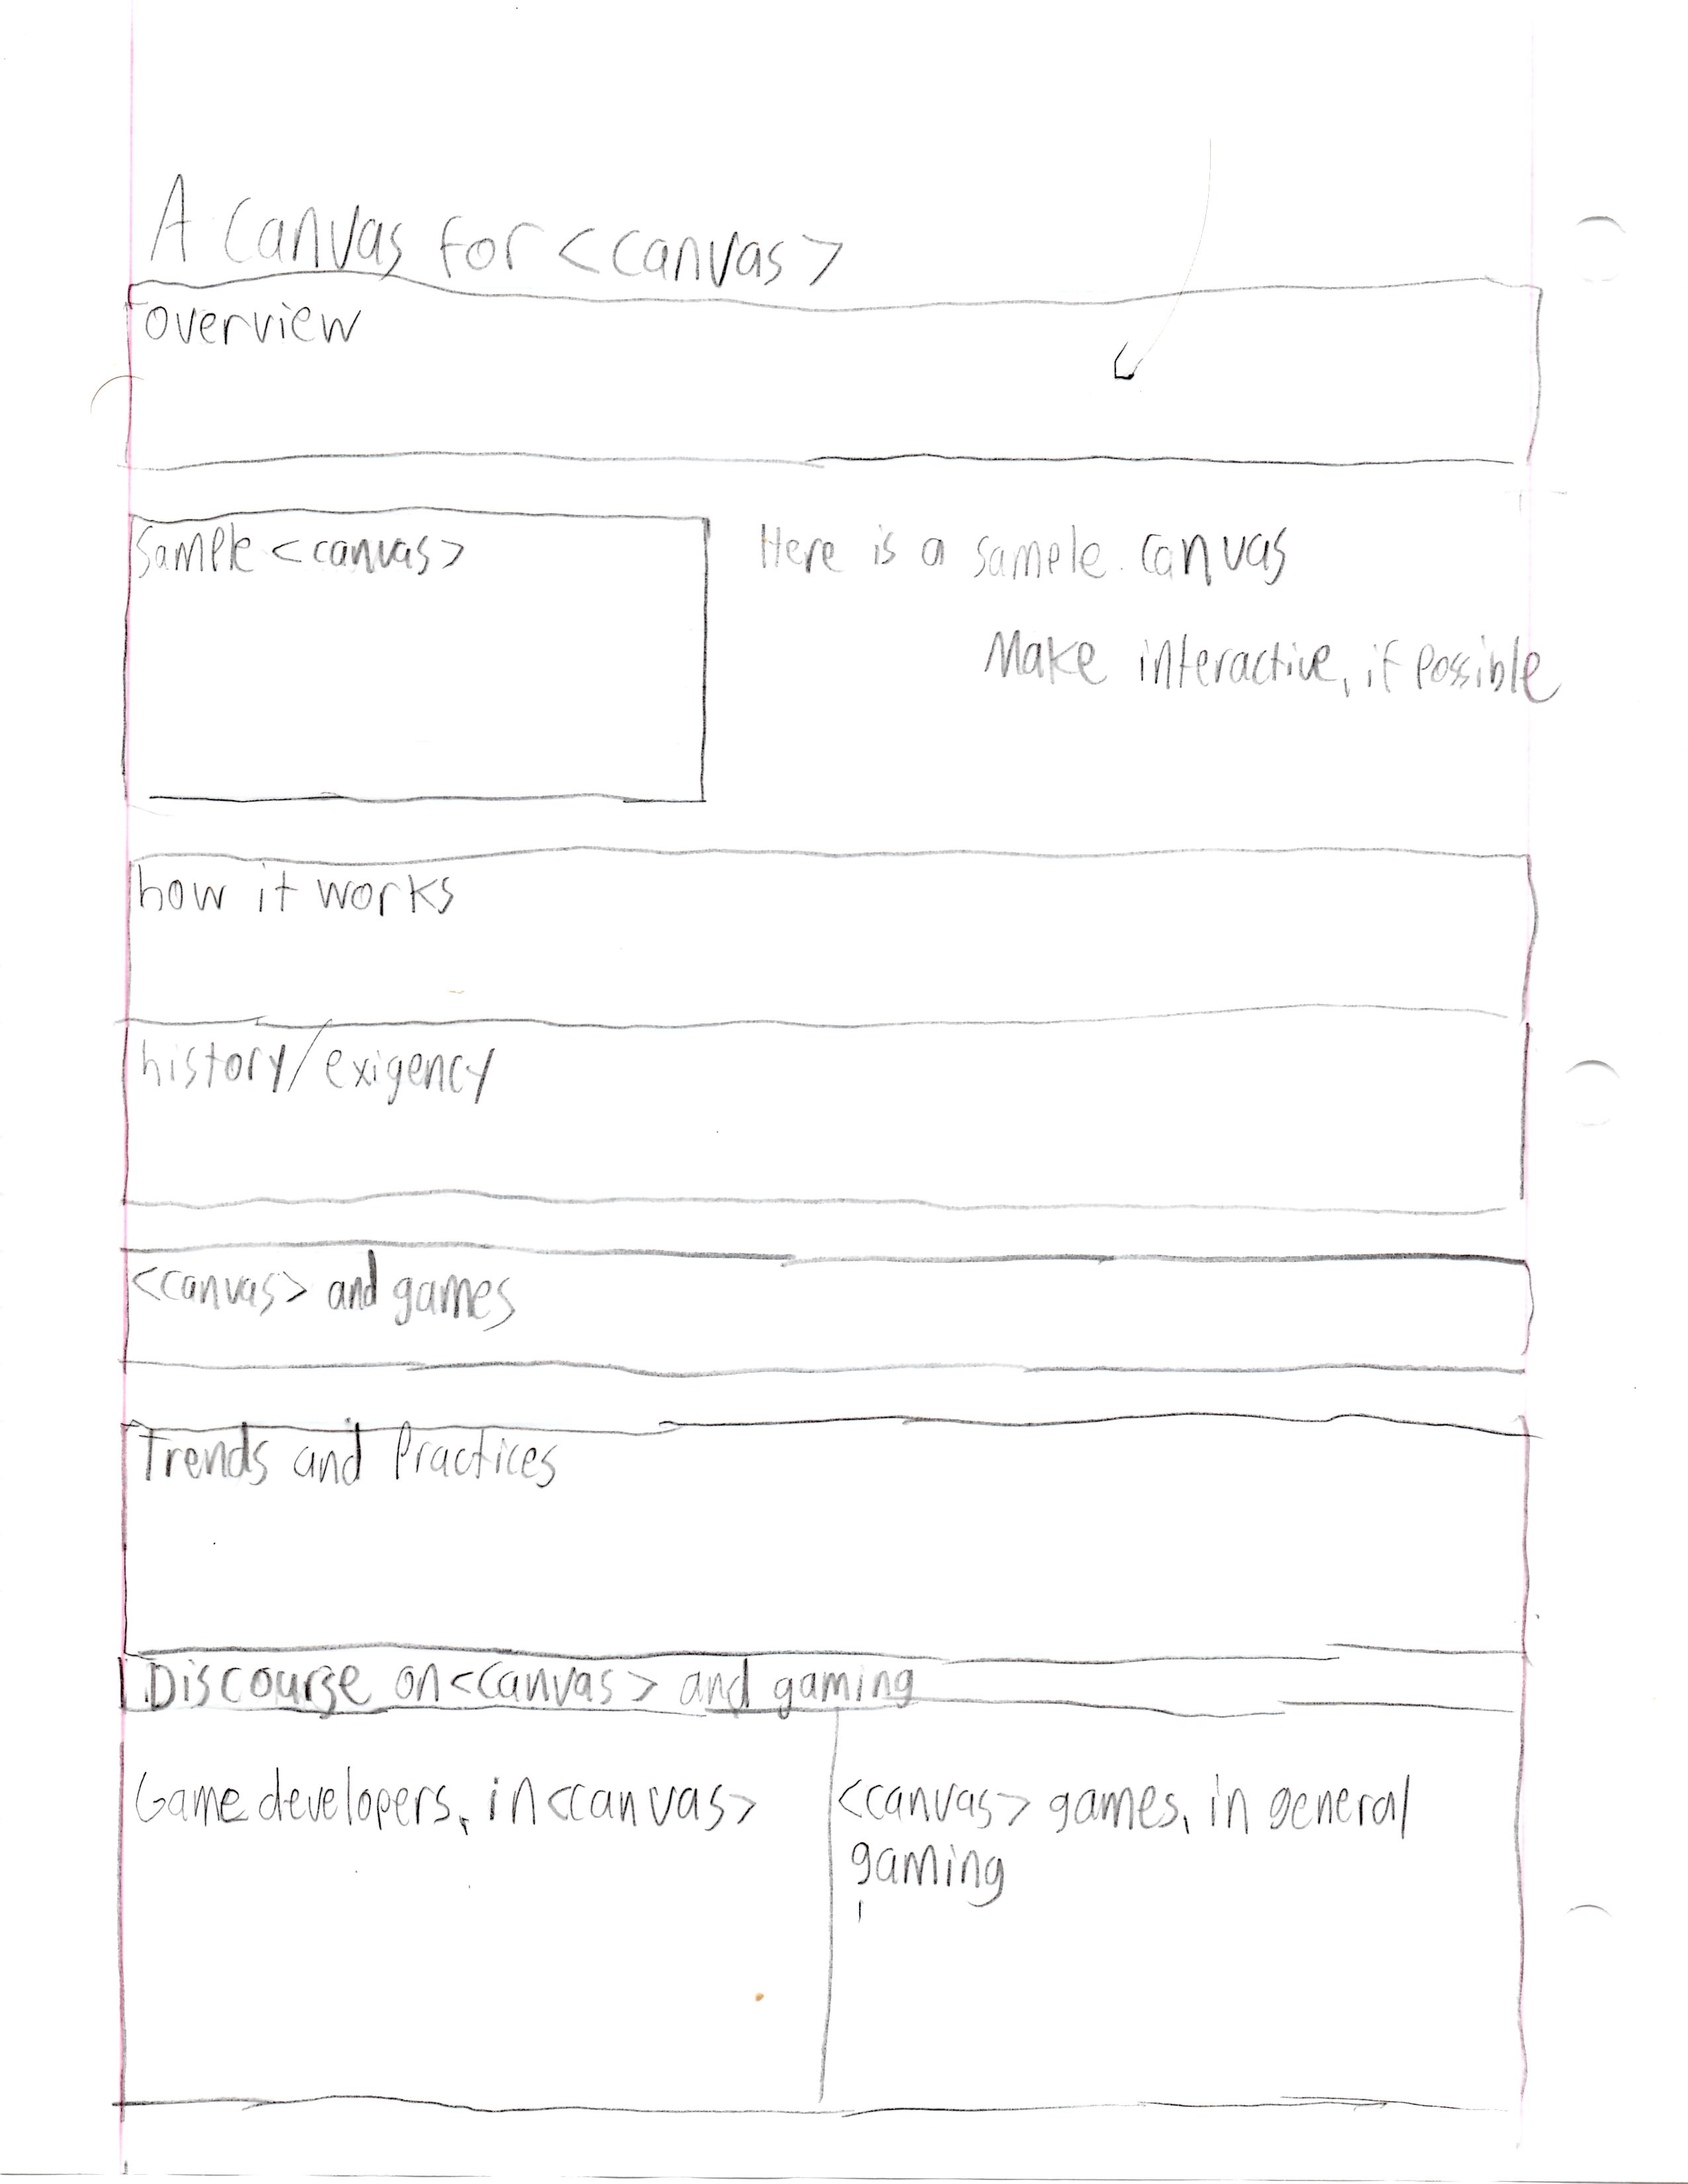 A canvas for <canvas>
overview
Sample <canvas>
Here is a sample canvas
Make interactive, if possible
how it works
history/exigency
<canvas> and games
Trends and Practices
Discourse on <canvas> and gaming
Game developers, in <canvas>
<canvas> games, in general
gaming